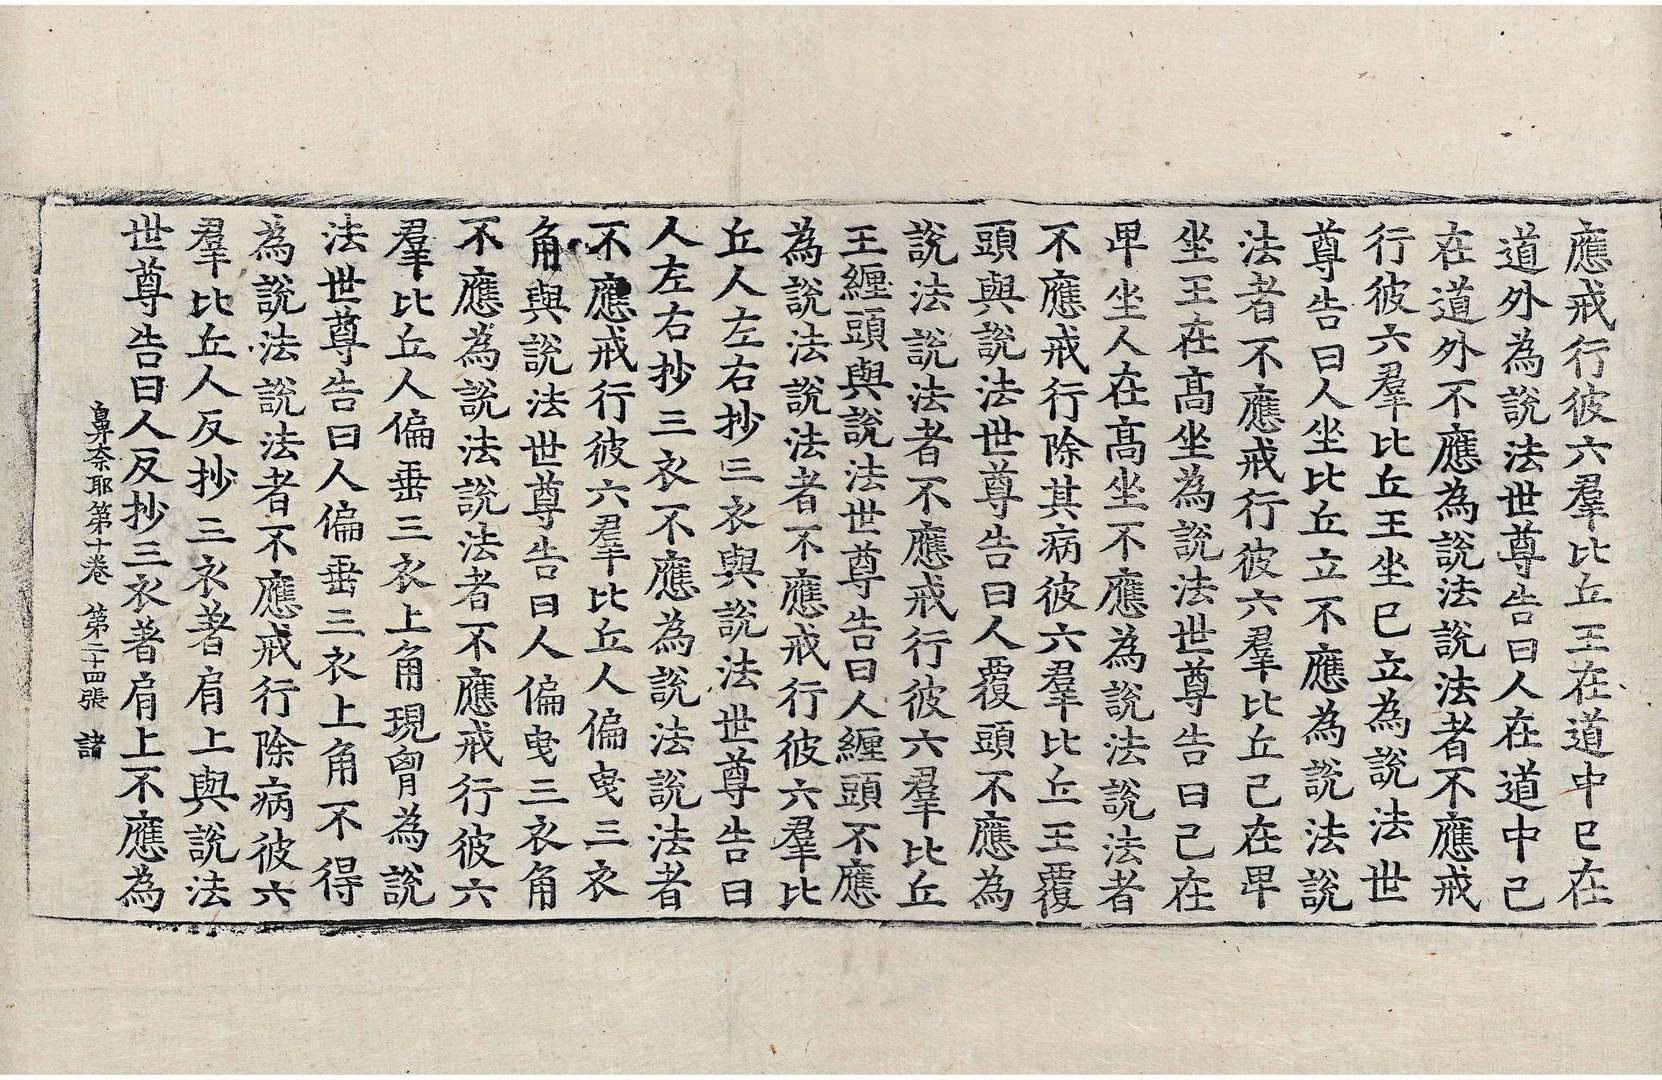 應戒行彼六羣比丘王在道中已在
道外為說法世尊告曰人在道中己
在道外不應為說法說法者不應戒
行彼六羣比丘王坐已立為說法世
尊告曰人坐比丘立不應為說法說
法者不應戒行彼六羣比丘己在卑
坐王在高坐為說法世尊告曰己在
卑坐人在高坐不應為說法說法者
不應戒行除其病彼六羣比丘王覆
頭與說法世尊告曰人覆頭不應為
說法說法者不應戒行彼六羣比丘
王纏頭與說法世尊告曰人纏頭不應
為說法說法者不應戒行彼六羣比
丘人左右抄三衣與說法世尊告曰
人左右抄三衣不應為說法說法者
不應戒行彼六羣比丘人偏曳三衣
角與說法世尊告曰人偏曳三衣角
不應為說法說法者不應戒行彼六
羣比丘人偏垂三衣上角現胷為說
法世尊告曰人偏垂三衣上角不得
為說法說法者不應戒行除病彼六
羣比丘人反抄三衣著肩上與說法
世尊告曰人反抄三衣著肩上不應為
鼻奈耶第十卷 第二十四張 諸